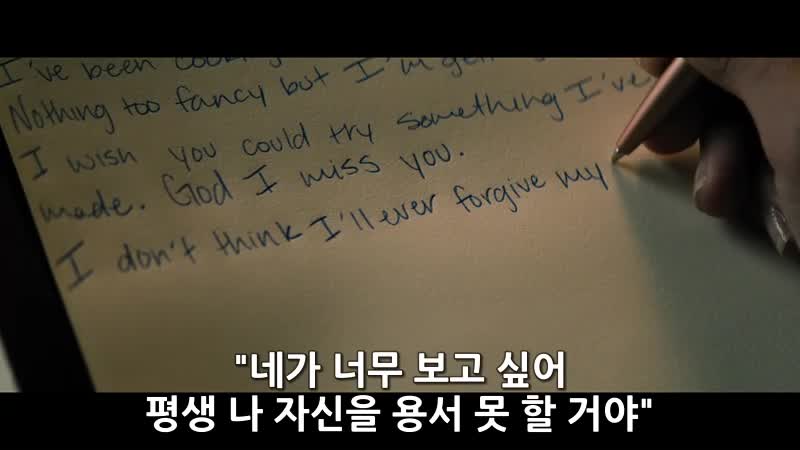 I've been
Nothing too fancy but I'm
I wish you could try something I've
made. God I miss you.
I don't think I'll ever forgive my
"네가 너무 보고 싶어
평생 나 자신을 용서 못 할 거야"